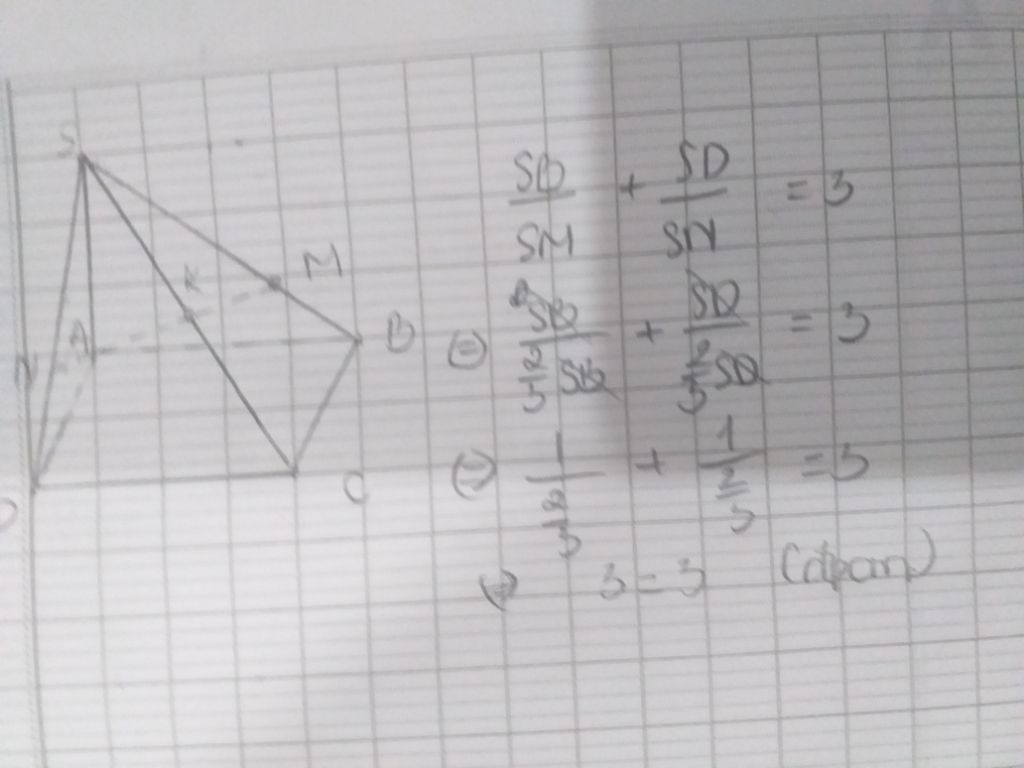 S
M
K
A
B
N
D
C
SB/SM + SD/SN = 3
⇔ SB/(2/3 SB) + SD/(2/3 SD) = 3
⇔ 1/(2/3) + 1/(2/3) = 3
⇔ 3 = 3 (đpcm)